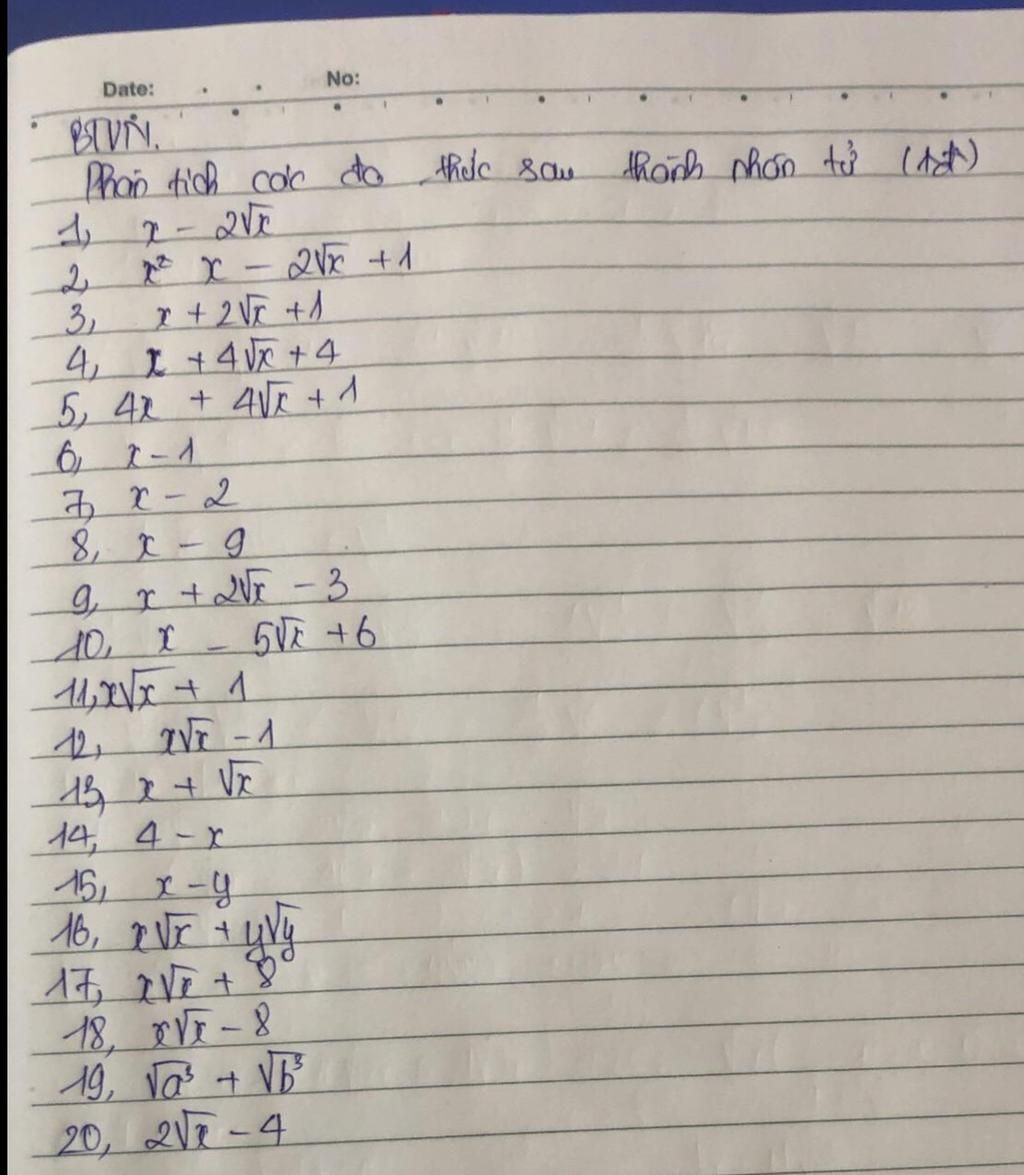 Date: . . No:
BTVN.
Phân tích các đa thức sau thành nhân tử
1, x - 2√x
2, x² x - 2√x + 1
3, x + 2√x + 1
4, x + 4√x + 4
5, 4x + 4√x + 1
6, x - 1
7, x - 2
8, x - 9
9, x + 2√x - 3
10, x - 5√x + 6
11, x√x + 1
12, x√x - 1
13, x + √x
14, 4 - x
15, x - y
16, x√x + y√y
17, x√x + 8
18, x√x - 8
19, √a³ + √b³
20, 2√x - 4